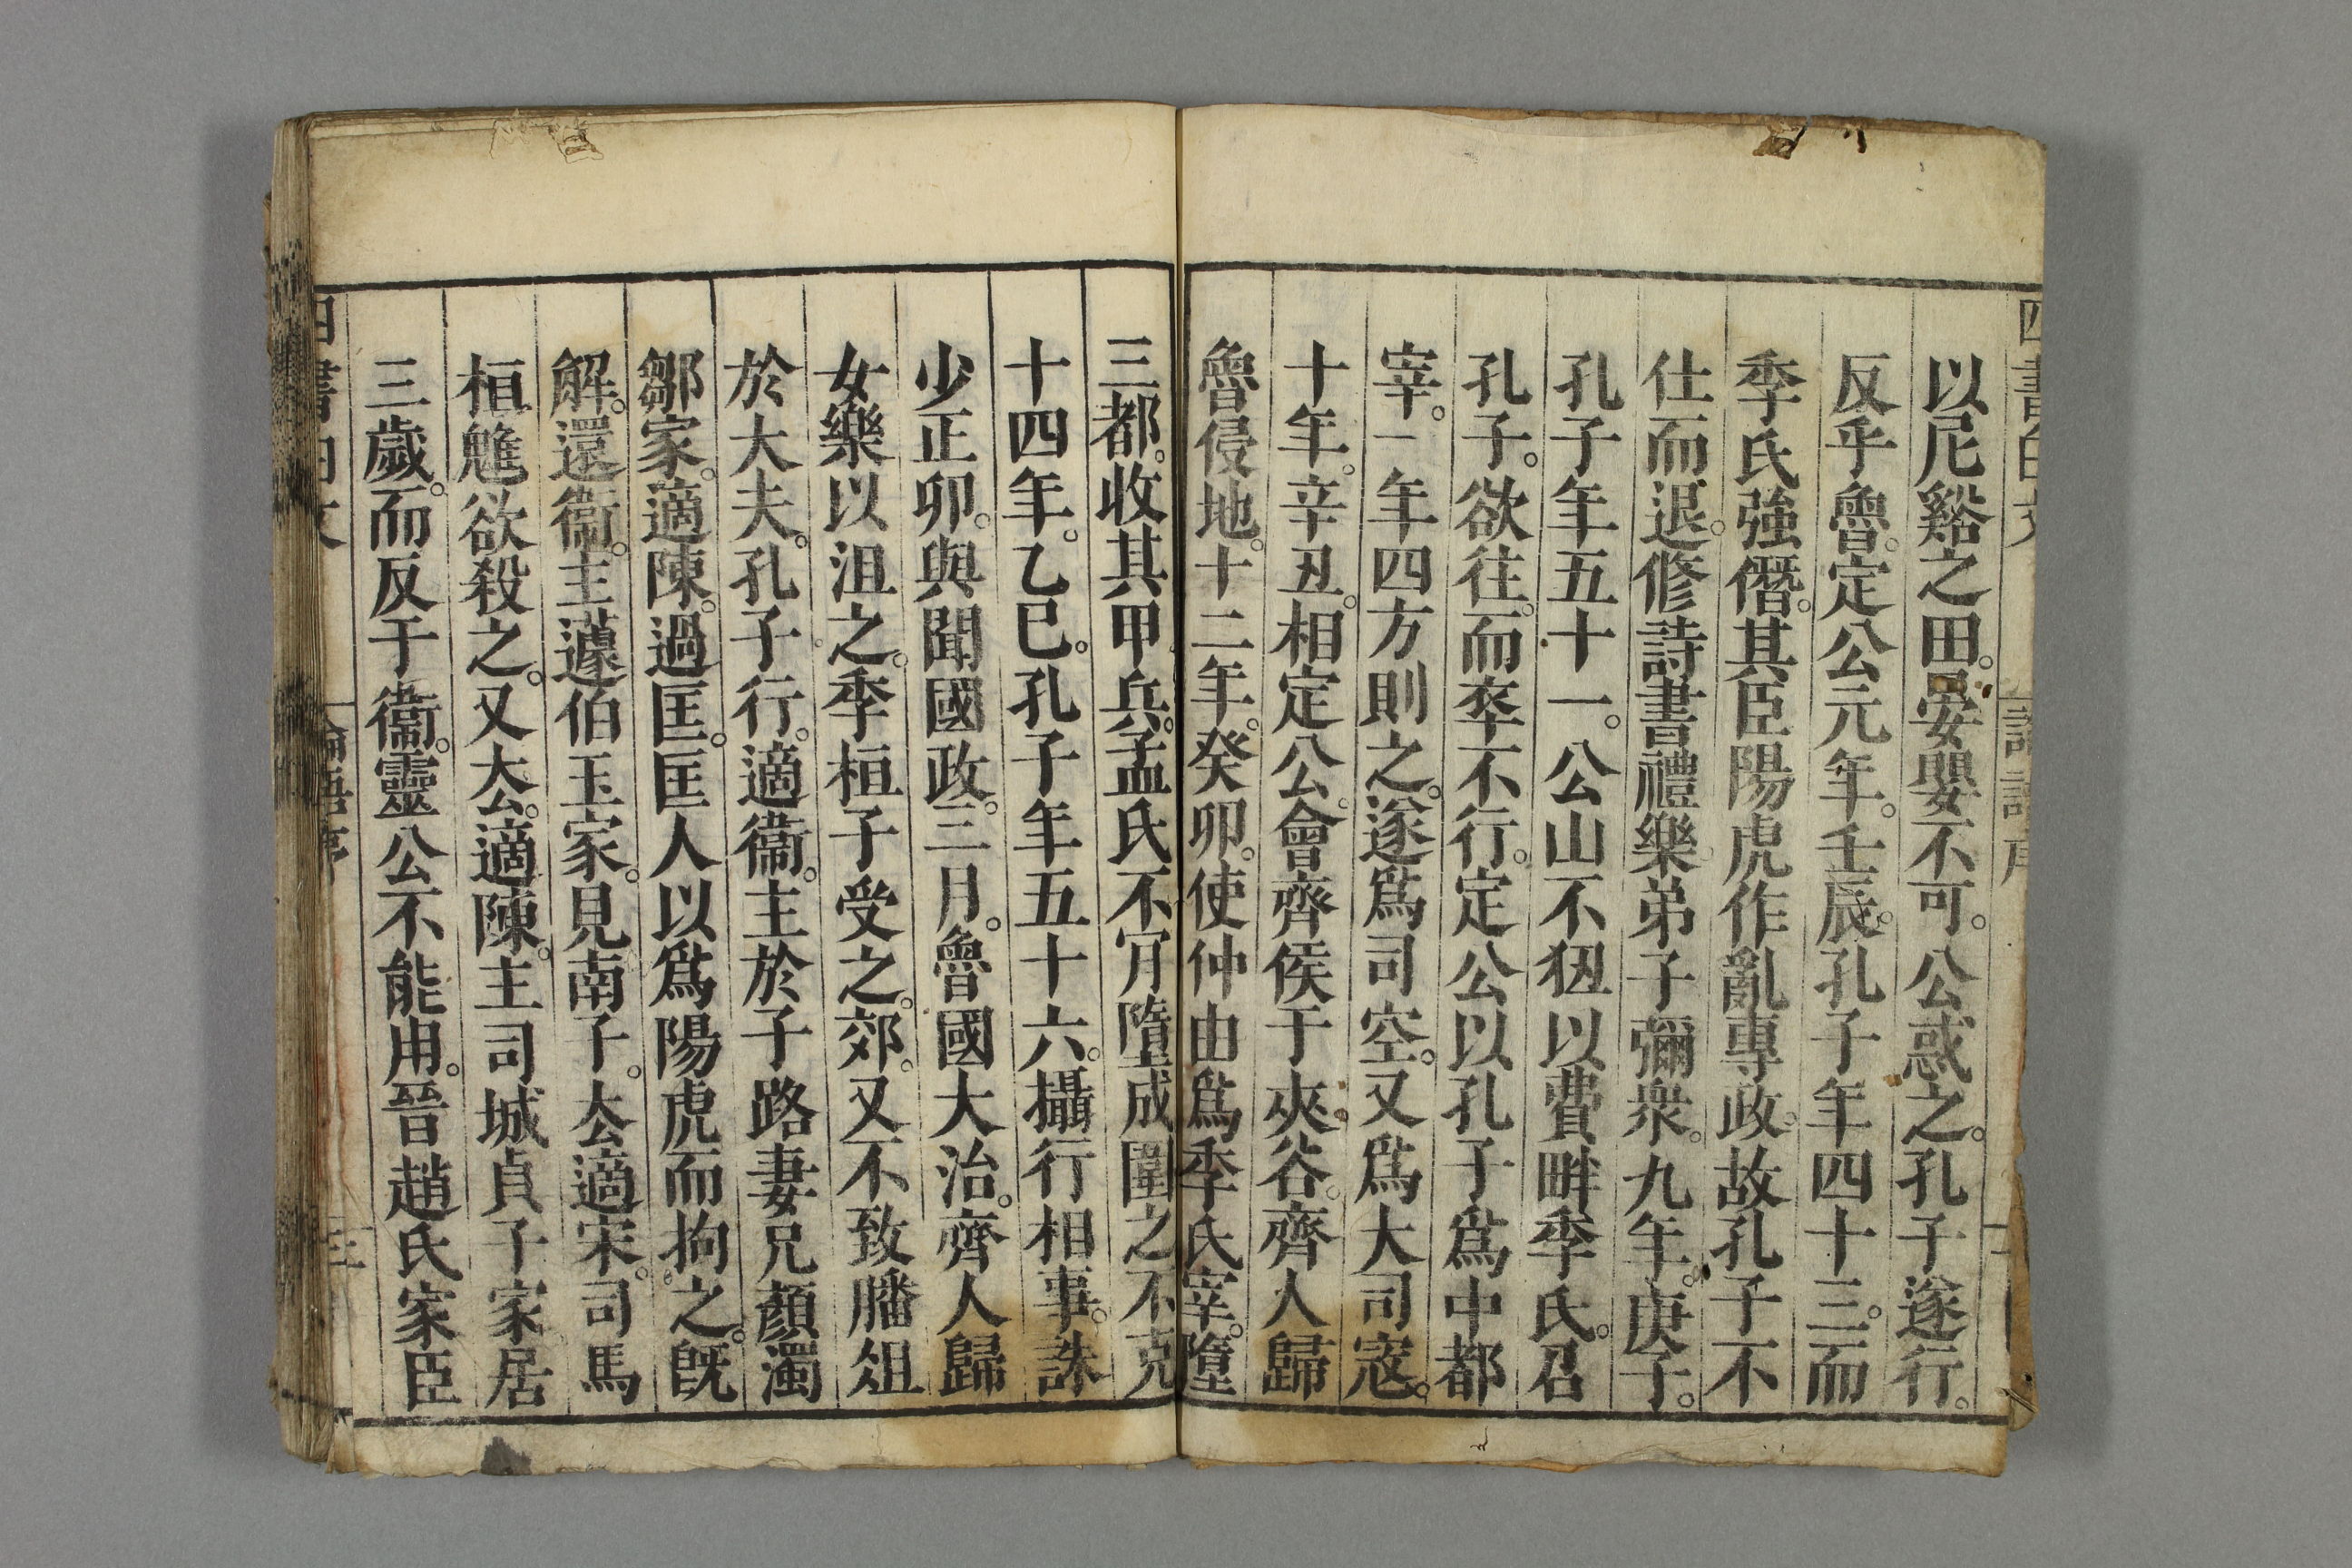 以尼谿之田。晏嬰不可。公惑之。孔子遂行。
反乎魯。定公元年。壬辰。孔子年四十三。而
季氏強僭。其臣陽虎作亂專政。故孔子不
仕而退。修詩書禮樂。弟子彌衆。九年。庚子。
孔子年五十一。公山不狃以費畔季氏。召
孔子。欲往。而卒不行。定公以孔子爲中都
宰。一年四方則之。遂爲司空。又爲大司寇。
十年。辛丑。相定公。會齊侯于夾谷。齊人歸
魯侵地。十二年。癸卯。使仲由爲季氏宰。墮
三都。收其甲兵。孟氏不肎墮成圍之不克
十四年。乙巳。孔子年五十六。攝行相事。誅
少正卯。與聞國政。三月。魯國大治。齊人歸
女樂以沮之。季桓子受之。郊。又不致膰俎
於大夫。孔子行。適衞。主於子路妻兄顏濁
鄒家。適陳。過匡。匡人以爲陽虎而拘之。旣
解。還衞。主蘧伯玉家。見南子。去適宋。司馬
桓魋欲殺之。又去。適陳。主司城貞子家居
三歲。而反于衞。靈公不能用。晉趙氏家臣
四書白文
論語序
三